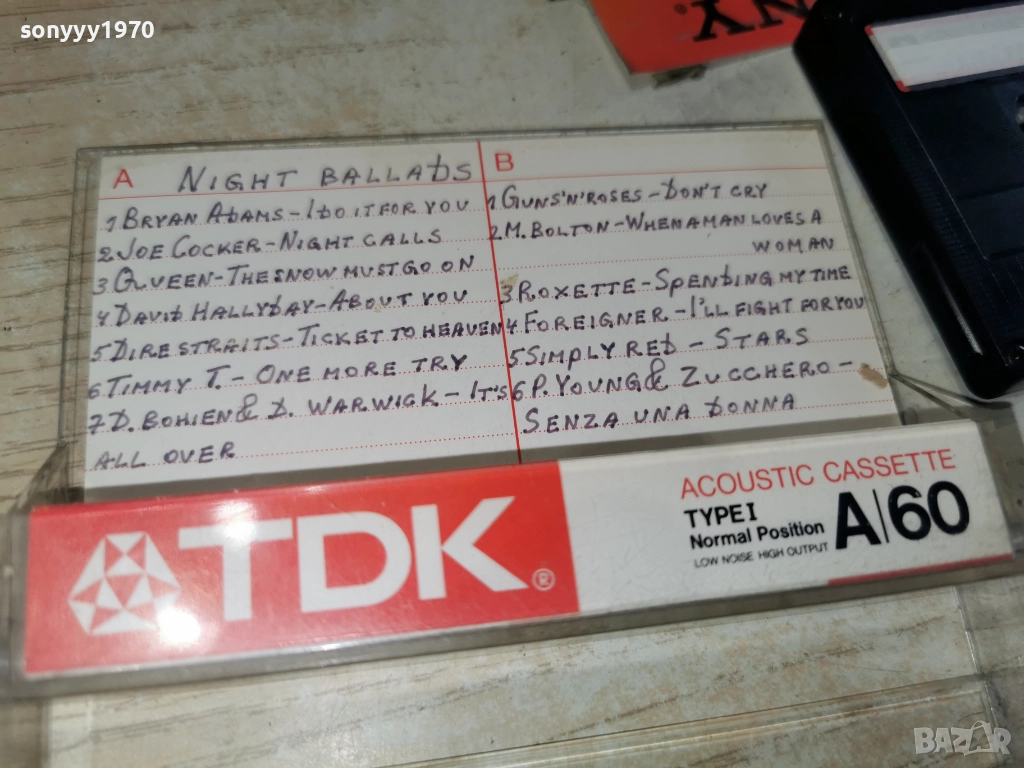 sonyyy1970
NY.
A NIGHT BALLADS
1 BRYAN ADAMS - I DO IT FOR YOU
2 JOE COCKER - NIGHT CALLS
3 QUEEN - THE SNOW MUST GO ON
4 DAVID HALLYDAY - ABOUT YOU
5 DIRE STRAITS - TICKET TO HEAVEN
6 TIMMY T. - ONE MORE TRY
7 D. BOHIEN & D. WARWICK - IT'S
ALL OVER
B
1 GUNS'N'ROSES - DON'T CRY
2 M. BOLTON - WHEN A MAN LOVES A
WOMAN
3 ROXETTE - SPENDING MY TIME
4 FOREIGNER - I'LL FIGHT FOR YOU
5 SIMPLY RED - STARS
6 P. YOUNG & ZUCCHERO -
SENZA UNA DONNA
TDK®
ACOUSTIC CASSETTE
TYPE I
Normal Position
LOW NOISE HIGH OUTPUT
A/60
BAZAR